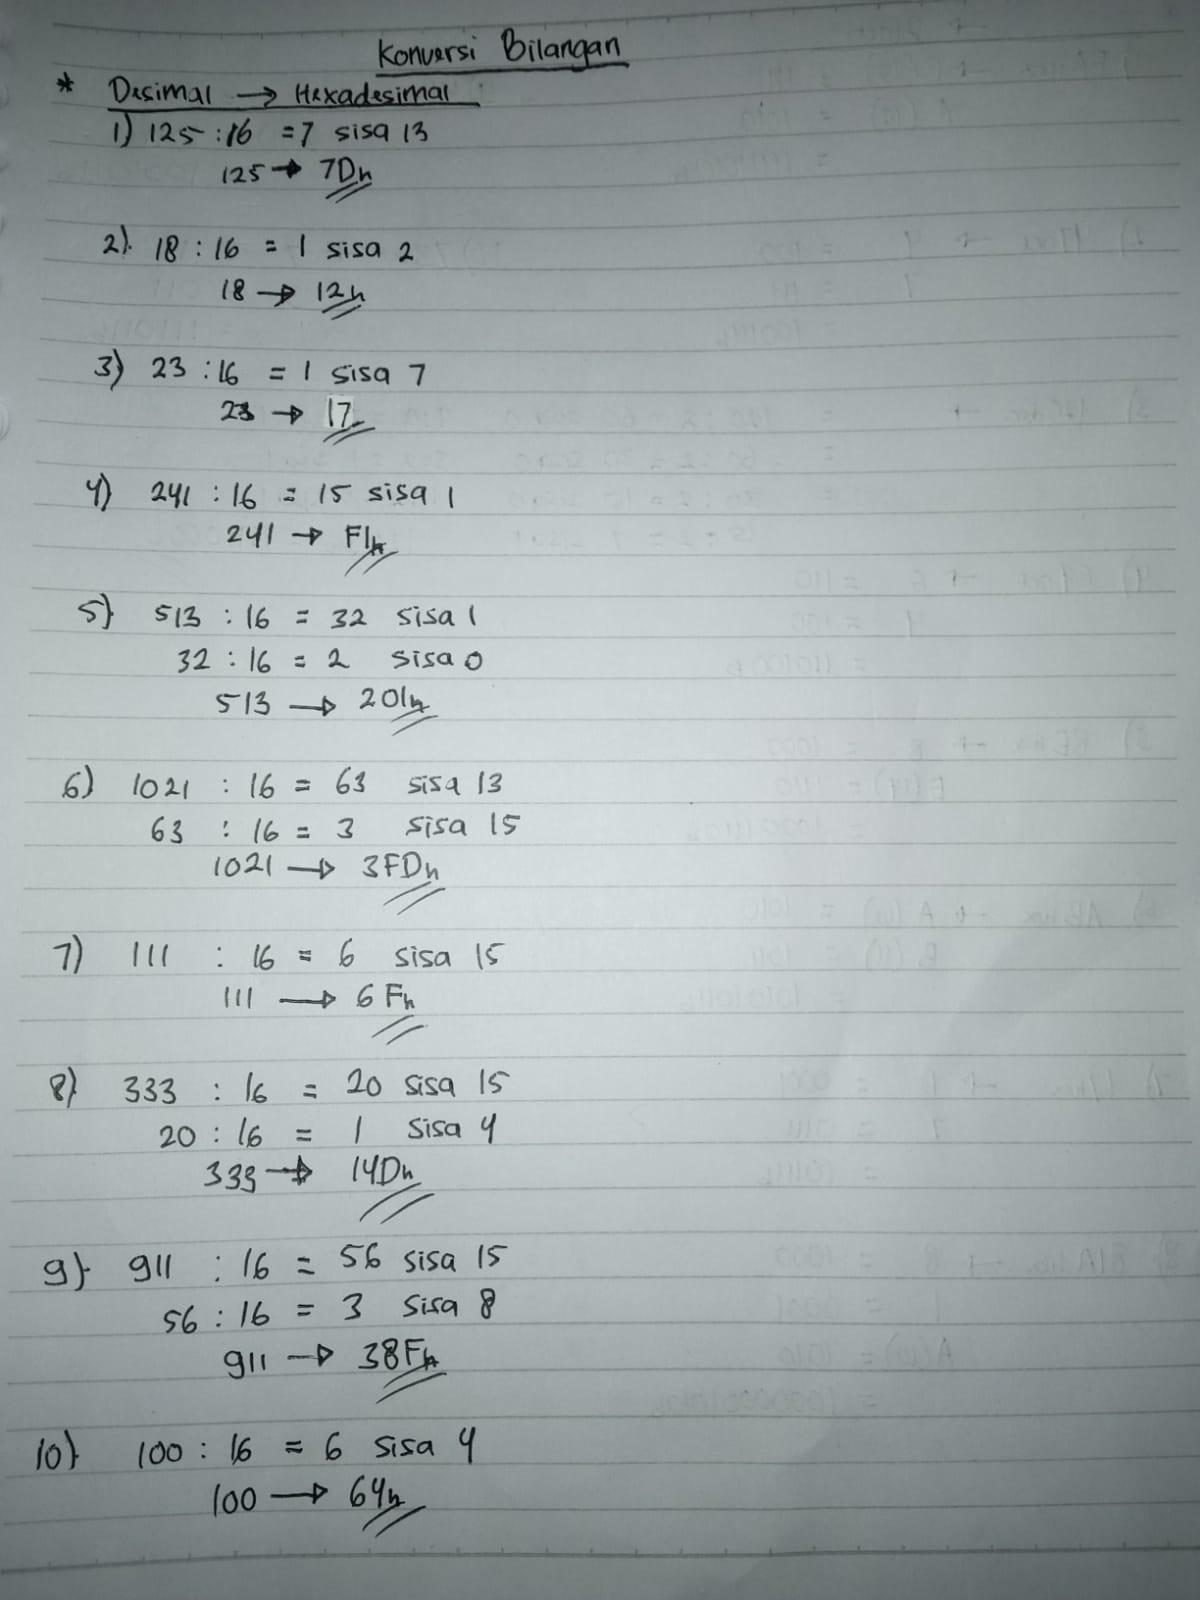 Konversi Bilangan
* Desimal → Hexadesimal
1) 125 : 16 = 7 sisa 13
125 → 7Dh
2) 18 : 16 = 1 sisa 2
18 → 12h
3) 23 : 16 = 1 sisa 7
23 → 17
4) 241 : 16 = 15 sisa 1
241 → F1h
5) 513 : 16 = 32 sisa 1
32 : 16 = 2 sisa 0
513 → 201h
6) 1021 : 16 = 63 sisa 13
63 : 16 = 3 sisa 15
1021 → 3FDh
7) 111 : 16 = 6 sisa 15
111 → 6Fh
8) 333 : 16 = 20 sisa 15
20 : 16 = 1 sisa 4
333 → 14Dh
9) 911 : 16 = 56 sisa 15
56 : 16 = 3 sisa 8
911 → 38Fh
10) 100 : 16 = 6 sisa 4
100 → 64h